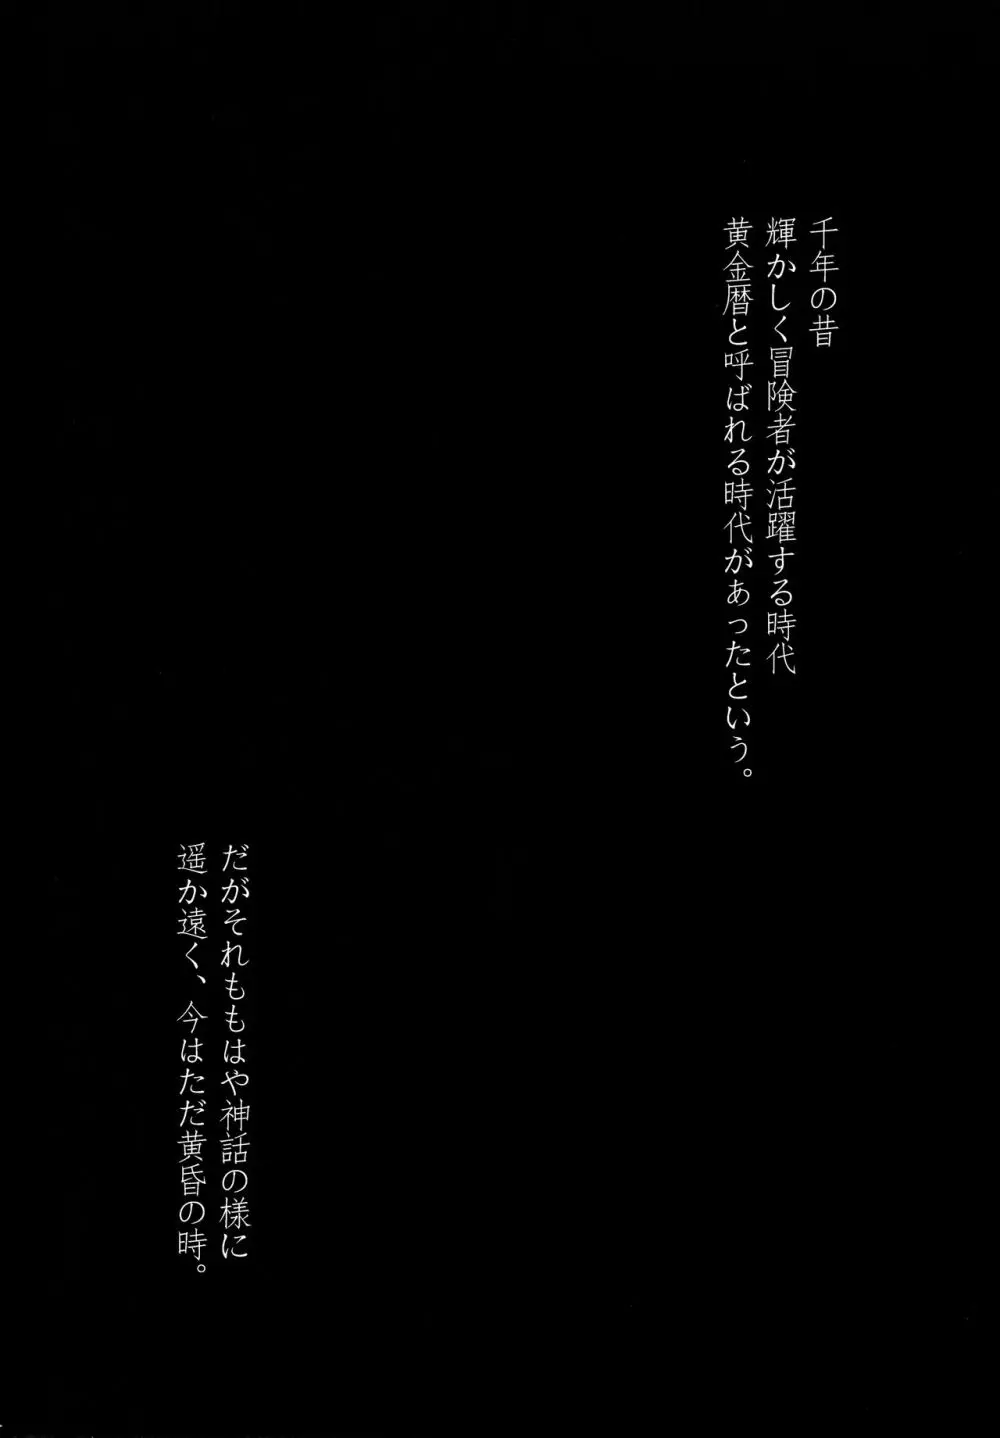 千年の昔
輝かしく冒険者が活躍する時代
黄金暦と呼ばれる時代があったという。
だがそれももはや神話の様に
遥か遠く、今はただ黄昏の時。